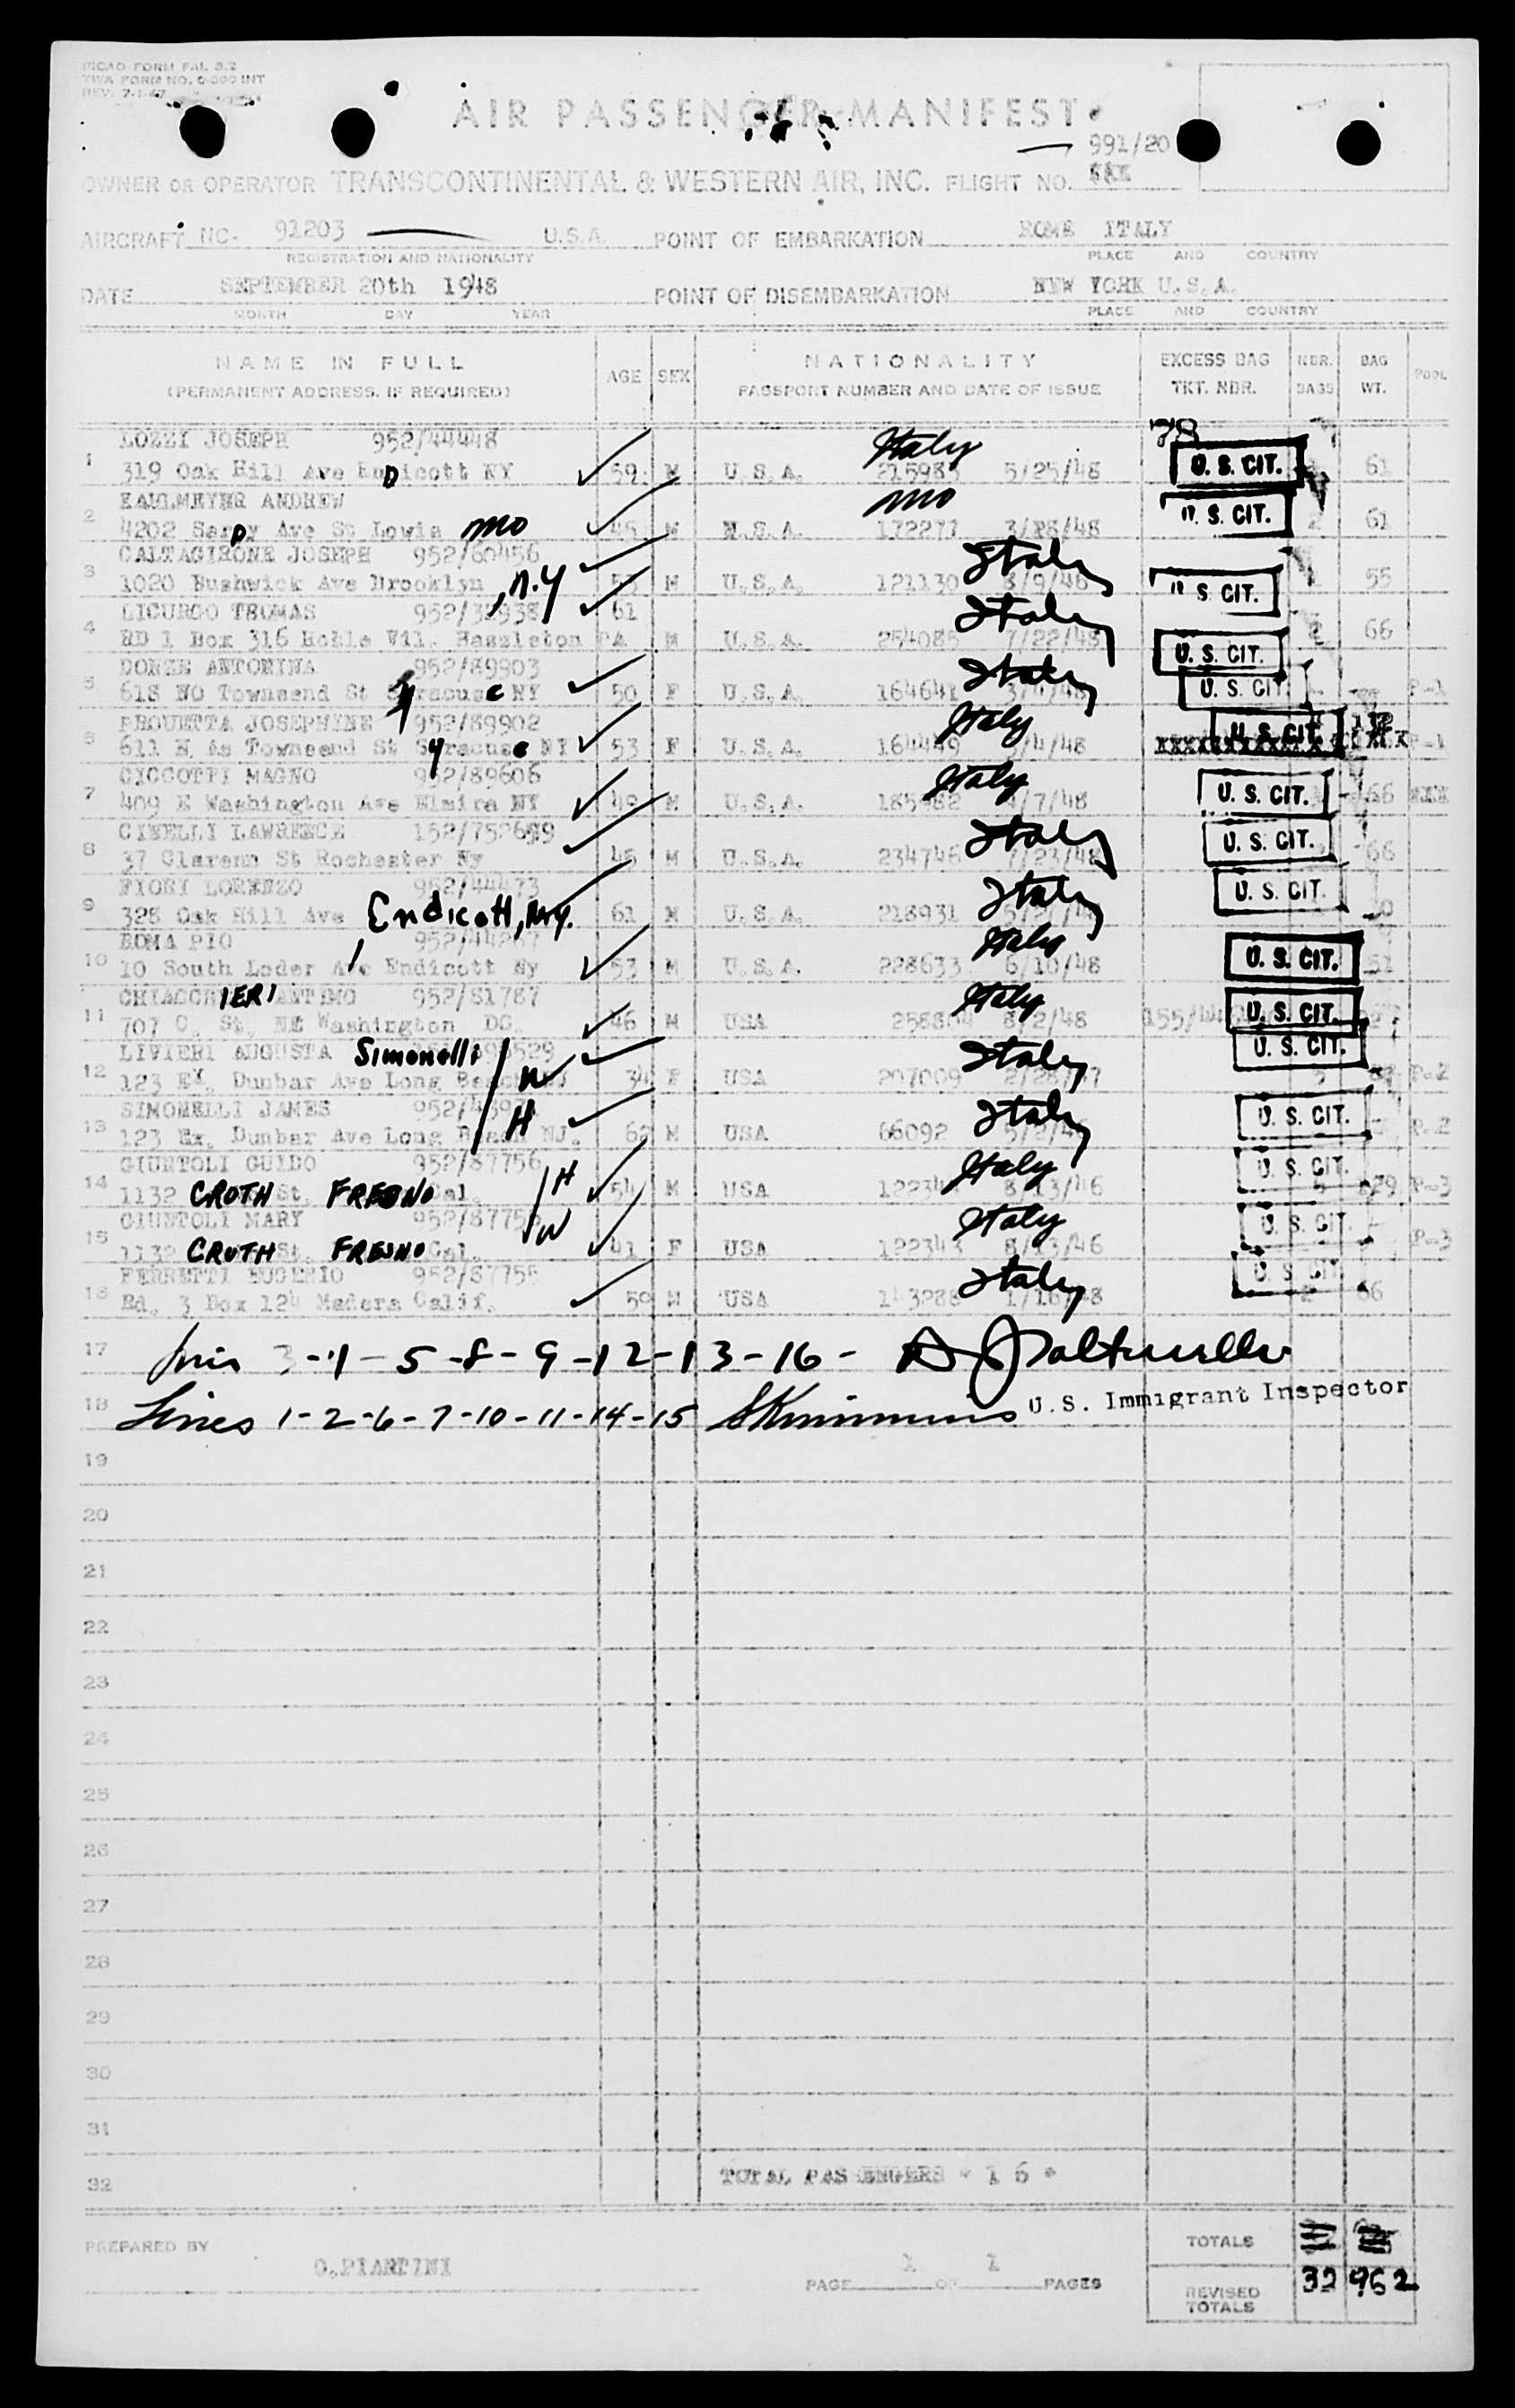 ICAO FORM FAL 3.2
TWA FORM NO. INT
REV. 7-1-47
AIR PASSENGER MANIFEST
991/20
OWNER OR OPERATOR TRANSCONTINENTAL & WESTERN AIR, INC. FLIGHT NO.
AIRCRAFT NC- 91203 U.S.A. POINT OF EMBARKATION ROME ITALY
REGISTRATION AND NATIONALITY PLACE AND COUNTRY
DATE SEPTEMBER 20th 1948 POINT OF DISEMBARKATION NEW YORK U.S.A.
MONTH DAY YEAR PLACE AND COUNTRY
NAME IN FULL AGE SEX NATIONALITY EXCESS BAG NBR. BAG POOL
(PERMANENT ADDRESS, IF REQUIRED) PASSPORT NUMBER AND DATE OF ISSUE TKT. NBR. BAGS WT.
LOZZI JOSEPH 952/44448 Italy
1 319 Oak Hill Ave Endicott NY 59 M U.S.A. 21598 5/25/48 U. S. CIT. 61
KAHLMEYER ANDREW Mo
2 4202 Sarpy Ave St Lowis Mo 45 M U.S.A. 172277 U. S. CIT. 61
CALTAGIRONE JOSEPH 952/60456 Italy
3 1020 Bushwick Ave Brooklyn, N.Y M U.S.A. 121130 8/9/46 U. S. CIT. 55
LICURGO THOMAS 952/32938 61 Italy
4 RD 1 Box 316 Vil. Hazzleton PA M U.S.A. 254085 7/22/48 U. S. CIT. 2 66
ANTONINA 952/89903 Italy
5 618 NO Townsend St Syracuse NY 50 F U.S.A. 164641 U. S. CIT. P-1
PROUETTA JOSEPHINE 952/89902 Italy
6 611 N. As Townsend St Syracuse NY 53 F U.S.A. /4/48 U. S. CIT. P-1
CICCOTTI MAGNO 952/89606 Italy
7 409 E Washington Ave Elmira NY 49 M U.S.A. /7/48 U. S. CIT. 66
CINELLI LAWRENCE Italy
8 37 St Rochester Ny 45 M U.S.A. 234746 7/23/48 U. S. CIT. 66
FIORI LORENZO 952/44473 Italy
9 328 Oak Hill Ave Endicott, N.Y. 61 M U.S.A. 218931 U. S. CIT.
ROMA PIO Italy
10 10 South Loder Ave Endicott Ny 53 M U.S.A. 228633 6/10/48 U. S. CIT. 51
CHIACCHIERI SANTINO 952/81787 Italy
11 707 C. St. NE Washington DC. 46 M USA 8/2/48 U. S. CIT.
LIVIERI AUGUSTA Simonelli Italy
12 123 Ex. Dunbar Ave Long Beach NJ W 34 F USA 207009 U. S. CIT. P-2
SIMONELLI JAMES Italy
13 123 Ex. Dunbar Ave Long Beach NJ. H 62 M USA 66092 U. S. CIT. P-2
GIUNTOLI GUIDO 952/87756 Italy
14 1132 CROTH St. FRESNO Cal. H 54 M USA 8/13/46 U. S. CIT. P-3
GIUNTOLI MARY Italy
15 1132 CROTH St. FRESNO Cal. W 41 F USA 122343 8/13/46 U. S. CIT. P-3
FERRETTI EUGENIO 952/87755 Italy
16 Rd. 3 Box 124 Madera Calif. 50 M USA U. S. CIT. 66
17 3-4-5-8-9-12-13-16-
U.S. Immigrant Inspector
18 Lines 1-2-6-7-10-11-14-15
19
20
21
22
23
24
25
26
27
28
29
30
31
32 TOTAL PASSENGERS * 16 *
PREPARED BY TOTALS
O.PIARTINI PAGE 1 OF 1 PAGES
REVISED TOTALS 32 962